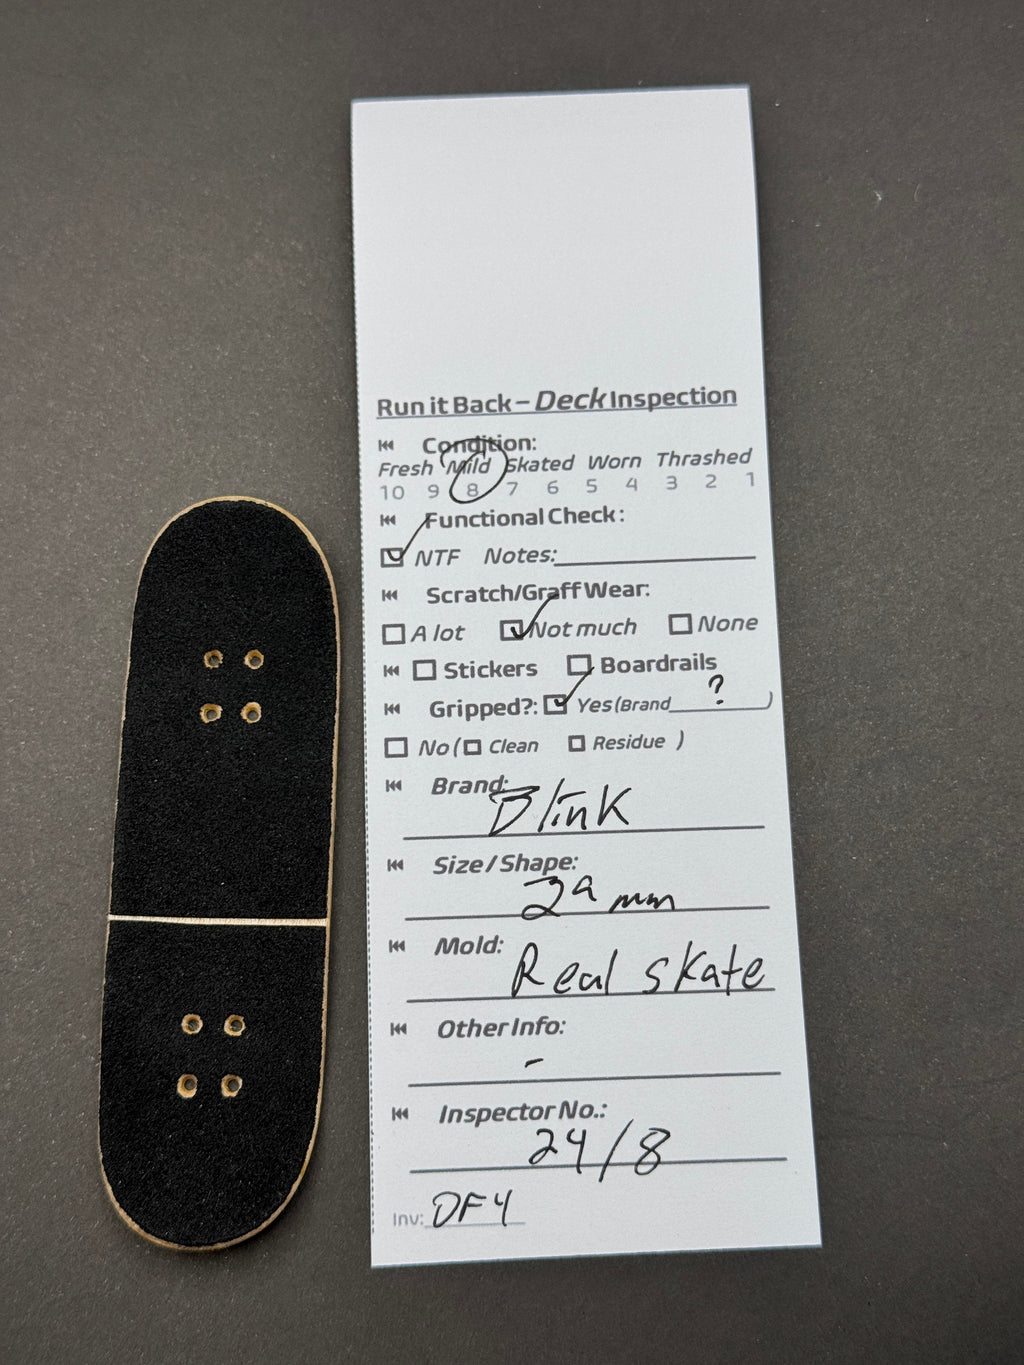 Run it Back – Deck Inspection
Condition:
Fresh Mild Skated Worn Thrashed
10 9 8 7 6 5 4 3 2 1
Functional Check:
NTF Notes:
Scratch/Graff Wear:
A lot Not much None
Stickers Boardrails
Gripped?: Yes (Brand ? )
No ( Clean Residue )
Brand:
Blink
Size / Shape:
29 mm
Mold:
Real skate
Other Info:
-
Inspector No.:
24/8
Inv: DF4